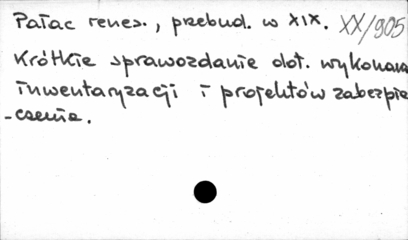 Pałac renes., przebud. w XIX. XX/905
Krótkie sprawozdanie dot. wykonana
inwentaryzacji i projektów zabezpie
-czenia.